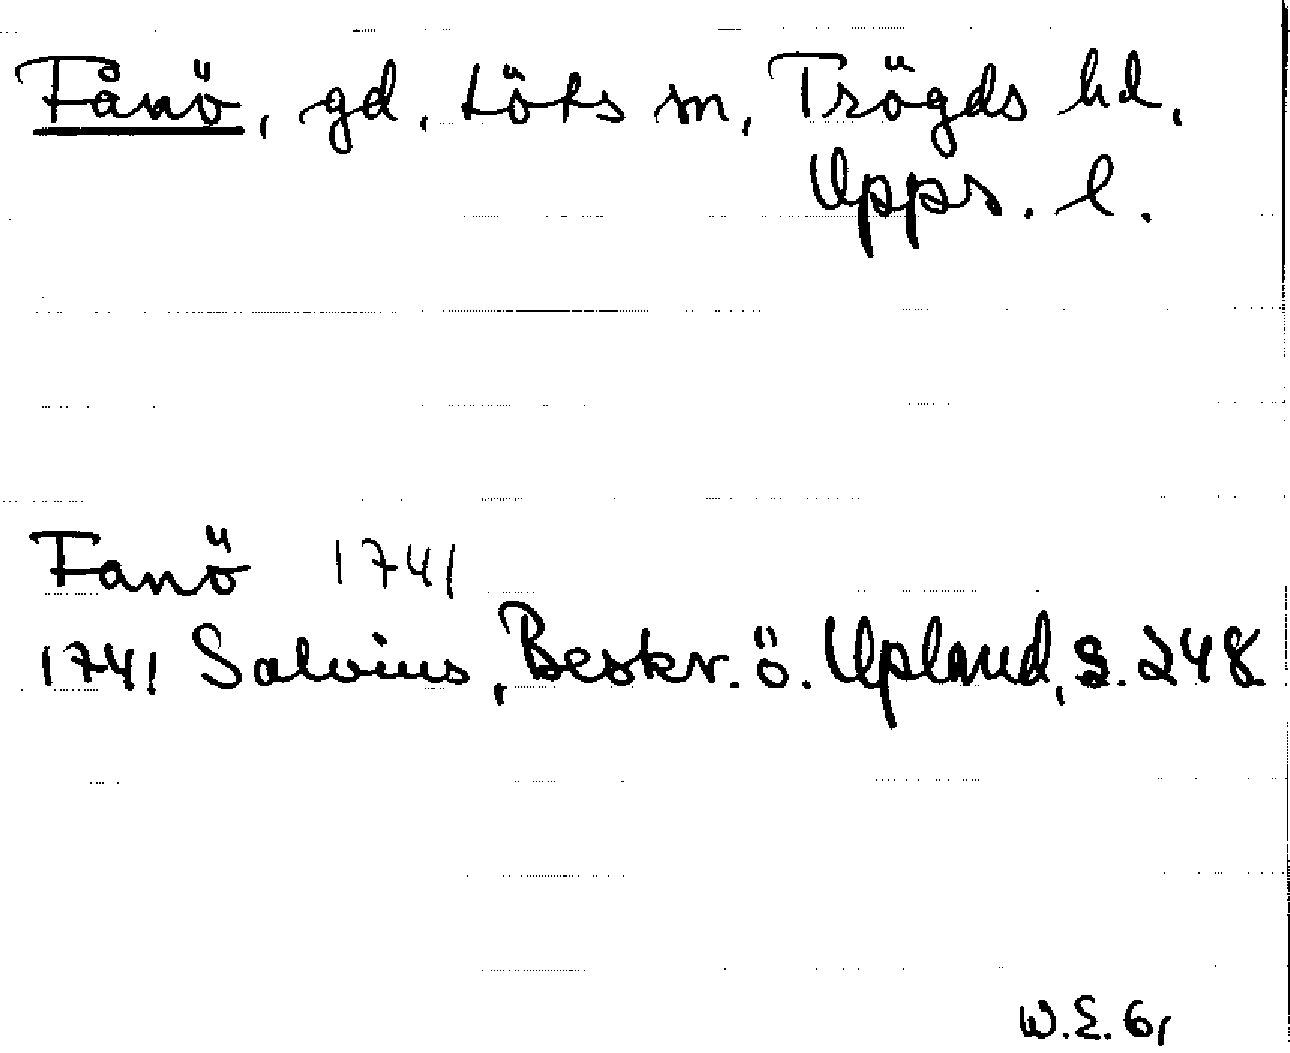 Fånö, gd, Löts sn, Trögds hd,
Upps. l.
Fanö 1741
1741 Salvius, Beskr. ö. Upland, S. 248
W. E. 61